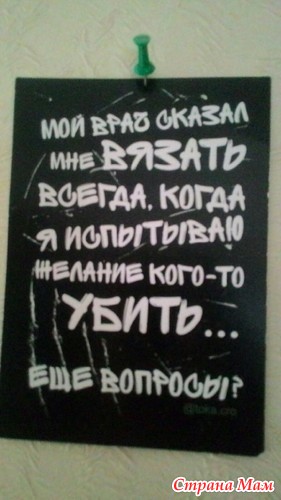 МОЙ ВРАЧ СКАЗАЛ
МНЕ ВЯЗАТЬ
ВСЕГДА, КОГДА
Я ИСПЫТЫВАЮ
ЖЕЛАНИЕ КОГО-ТО
УБИТЬ...
ЕЩЕ ВОПРОСЫ?
Страна Мам